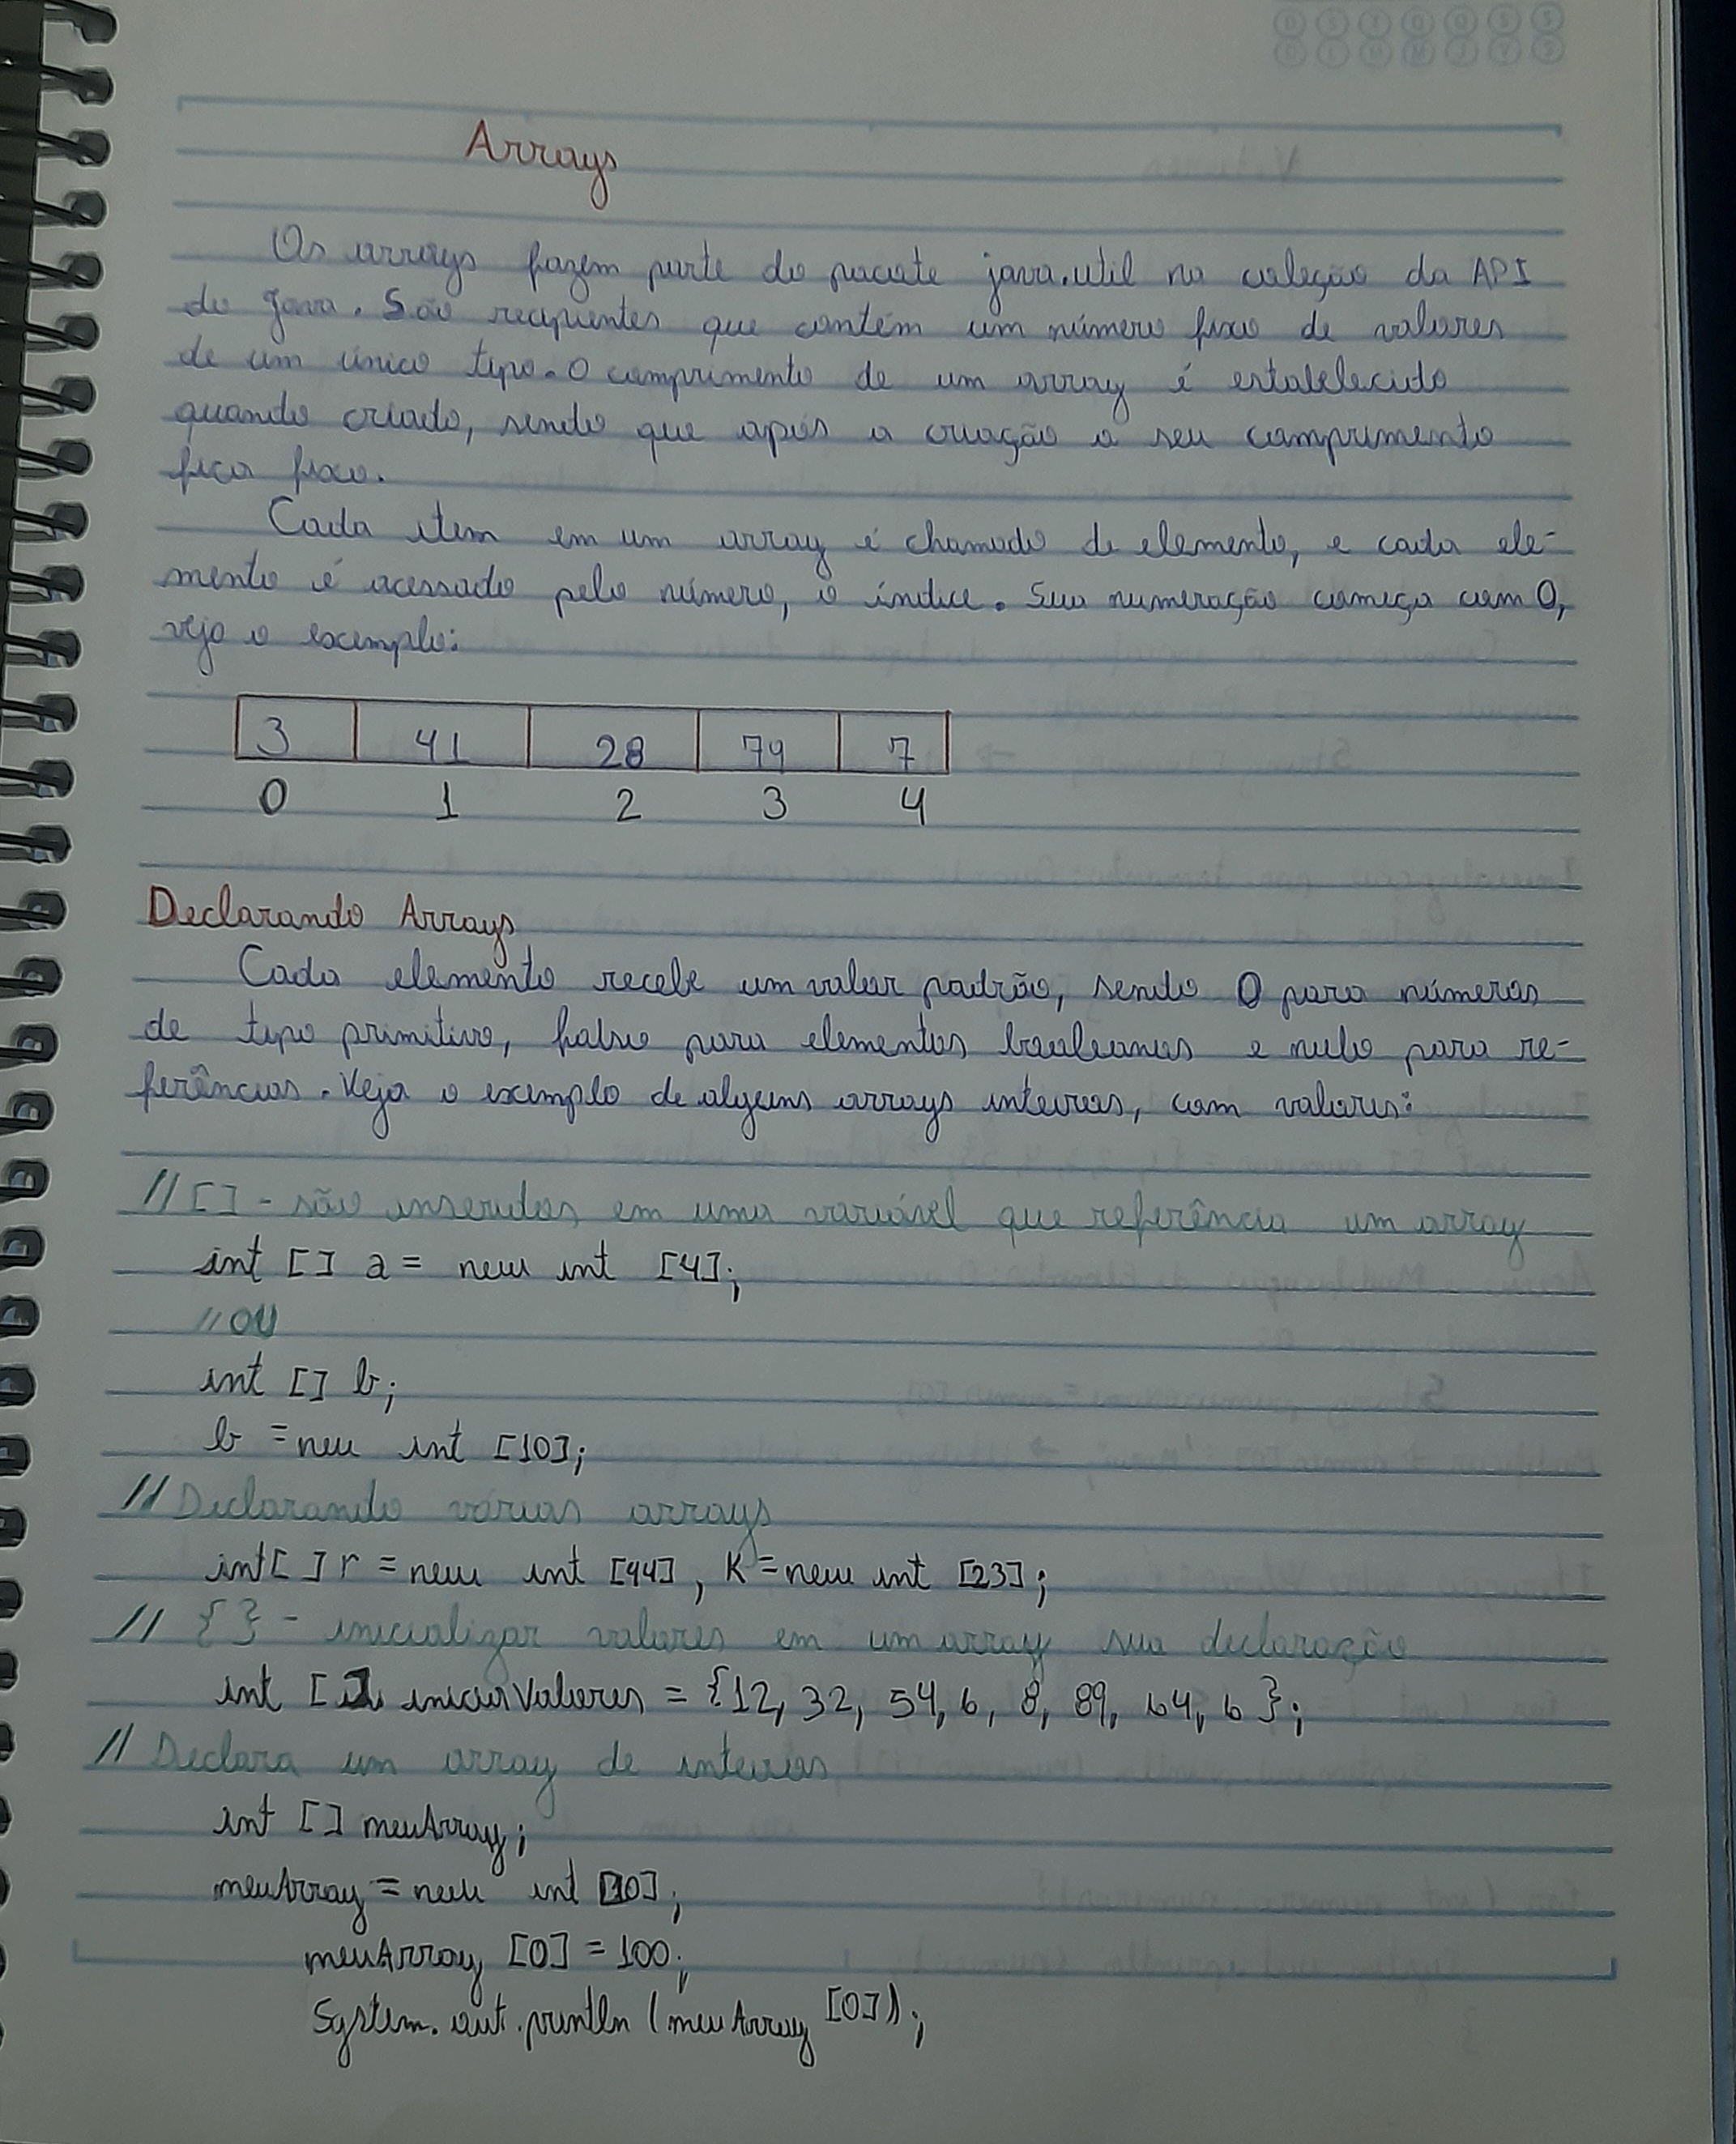 Arrays
Os arrays fazem parte do pacote java.util na coleção da API
do Java. São recipientes que contém um número fixo de valores
de um único tipo. O comprimento de um array é estabelecido
quando criado, sendo que após a criação o seu comprimento
fica fixo.
Cada item em um array é chamado de elemento, e cada ele-
mento é acessado pelo número, o índice. Sua numeração começa com 0,
veja o exemplo:
3 41 28 79 7
0 1 2 3 4
Declarando Arrays
Cada elemento recebe um valor padrão, sendo 0 para números
de tipo primitivo, falso para elementos booleanos e nulo para re-
ferências. Veja o exemplo de alguns arrays inteiros, com valores:
// [] - são inseridos em uma variável que referência um array
int [] a = new int [4];
// OU
int [] b;
b = new int [10];
// Declarando vários arrays
int[] r = new int [44], k = new int [23];
// { } - inicializar valores em um array sua declaração
int [] iniciaValores = {12, 32, 54, 6, 8, 89, 64, 6 };
// Declara um array de inteiros
int [] meuArray;
meuArray = new int [10];
meuArray [0] = 100;
System.out.println (meuArray [0]);